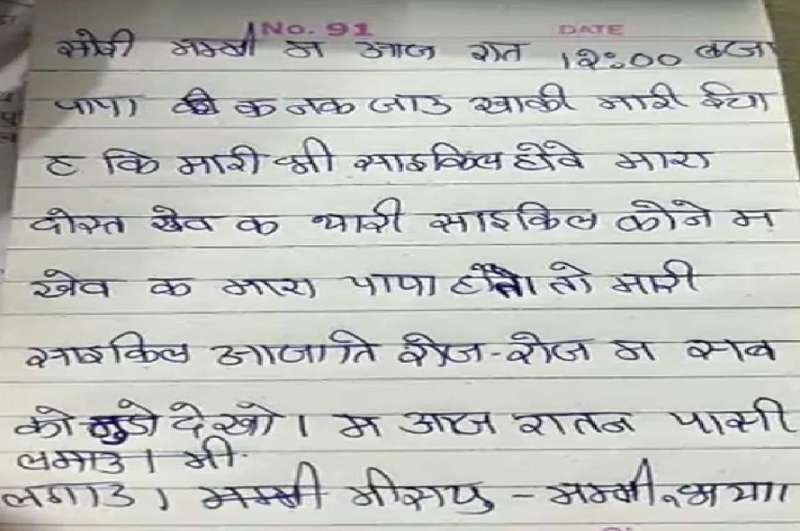 No. 91 DATE
सोरी मम्मी म आज रात १२:०० बजा
पापा की क नक जाउ खाकी मारी ईचा
ह कि मारी भी साइकिल होवे मारा
दोस्त खेव क थारी साइकिल कोने म
खेव क मारा पापा होता तो मारी
साइकिल आजाति रोज-रोज म सब
को मुडो देखो। म आज रातन पासी
लगाउ। मी
लगाउ। मम्मी मीसयु - मम्मी,भया।